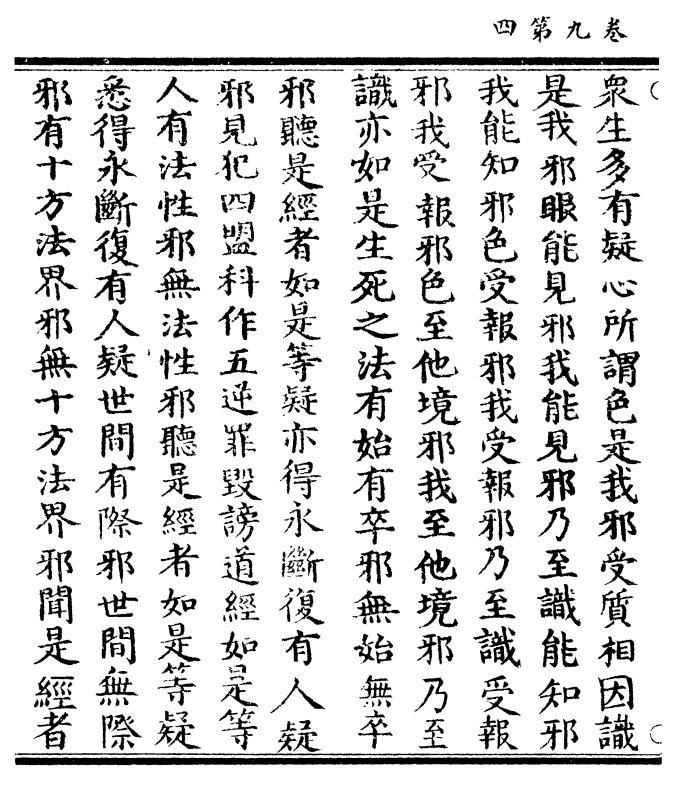 卷九第四
衆生多有疑心所謂色是我邪受質相因識
是我邪眼能見邪我能見邪乃至識能知邪
我能知邪色受報邪我受報邪乃至識受報
邪我受報邪色至他境邪我至他境邪乃至
識亦如是生死之法有始有卒邪無始無卒
邪聽是經者如是等疑亦得永斷復有人疑
邪見犯四盟科作五逆罪毀謗道經如是等
人有法性邪無法性邪聽是經者如是等疑
悉得永斷復有人疑世間有際邪世間無際
邪有十方法界邪無十方法界邪聞是經者